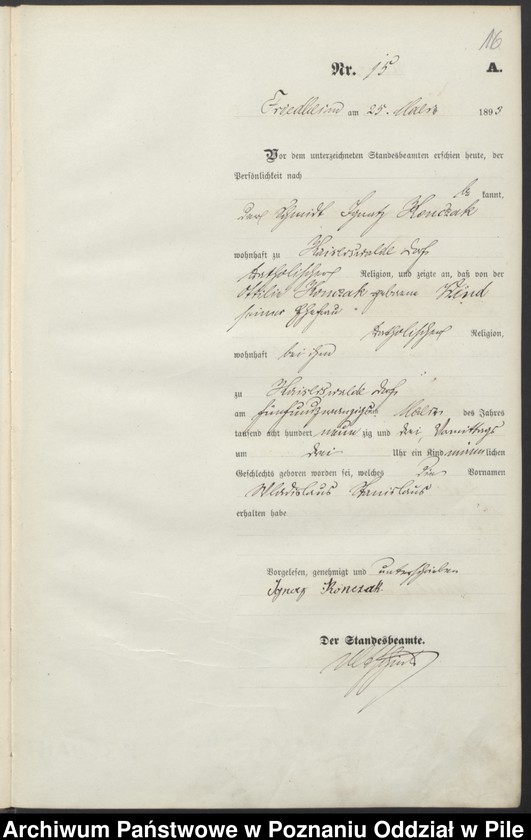 16.
Nr. 15
A.
Friedheim am 25. März 1893
Vor dem unterzeichneten Standesbeamten erschien heute, der
Persönlichkeit nach
be kannt,
der Schmidt Ignatz Konczak
wohnhaft zu Kaiserswalde Dorf
katholischer Religion, und zeigte an, daß von der
Ottilie Konczak geborene Kind
seiner Ehefrau
katholischer Religion,
wohnhaft bei ihm
zu Kaiserswalde Dorf
am fünfundzwanzigsten März des Jahres
tausend acht hundert neun zig und drei, Vormittags
um drei Uhr ein Kind männlichen
Geschlechts geboren worden sei, welches die Vornamen
Wladislaus Stanislaus
erhalten habe
Vorgelesen, genehmigt und unterschrieben
Ignaz Kończak.
Der Standesbeamte.
Archiwum Państwowe w Poznaniu Oddział w Pile